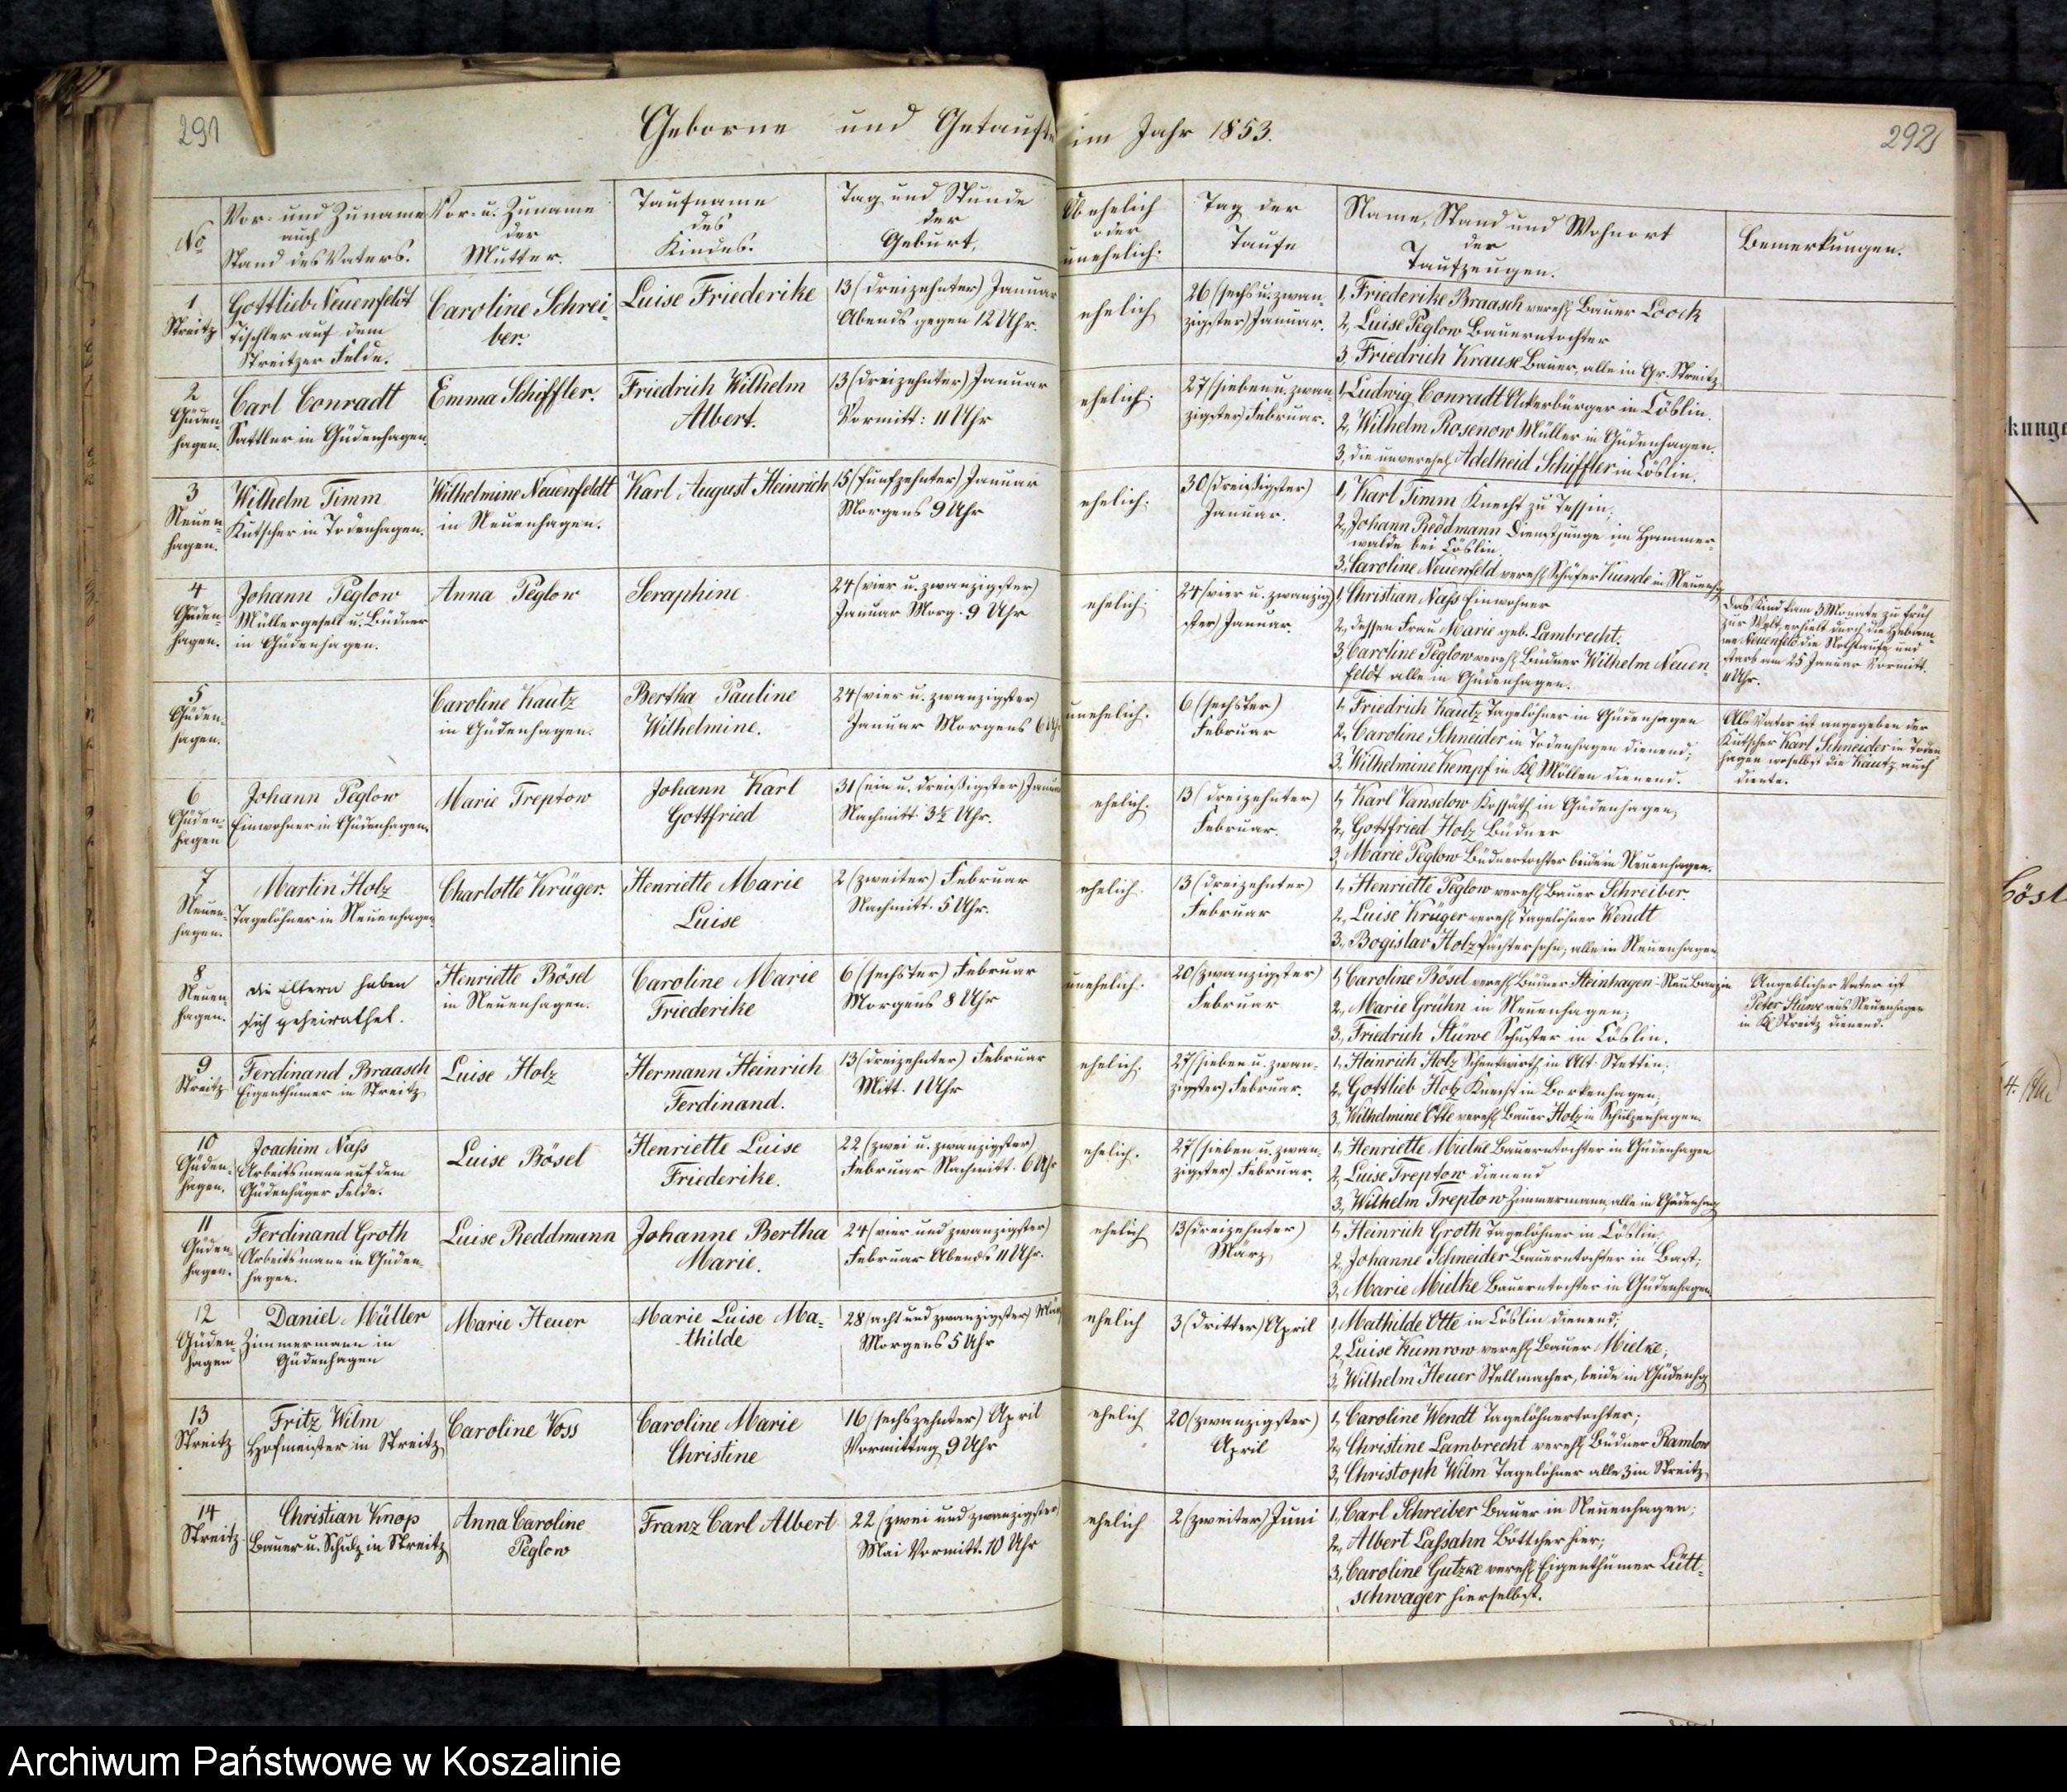 291
Geborne und Getaufte im Jahr 1853.
292
No
Vor- und Zuname
auch
Stand des Vaters.
Vor- u. Zuname
der
Mutter.
Taufname
des
Kindes.
Tag und Stunde
der
Geburt.
Ob ehelich
oder
unehelich:
Tag der
Taufe
Name, Stand und Wohnort
der
Taufzeugen.
Bemerkungen.
1
Streitz
Gottlieb Neuenfeldt
Tischler auf dem
Streitzer Felde.
Caroline Schrei-
ber.
Luise Friederike
13 (dreizehnter) Januar
Abends gegen 12 Uhr.
ehelich
26 (sechs u. zwan-
zigster) Januar.
1, Friederike Braasch verehl. Bauer Loock
2, Luise Peglow Bauerntochter
3, Friedrich Krause Bauer, alle in Gr. Streitz.
2
Güden-
hagen.
Carl Conradt
Sattler in Güdenhagen.
Emma Schiffler.
Friedrich Wilhelm
Albert.
13 (dreizehnter) Januar
Vormitt: 11 Uhr
ehelich:
27 (sieben u. zwan-
zigster) Februar.
1, Ludwig Conradt Ackerbürger in Cöslin.
2, Wilhelm Rosenow Müller in Güdenhagen.
3, die unverehel. Adelheid Schiffler in Cöslin.
3
Neuen-
hagen.
Wilhelm Timm
Kutscher in Todenhagen.
Wilhelmine Neuenfeldt
in Neuenhagen.
Karl August Heinrich
15 (funfzehnter) Januar
Morgens 9 Uhr
ehelich:
30 (dreißigster)
Januar.
1, Karl Timm Knecht zu Tessin;
2, Johann Reddmann Dienstjunge im Hammer-
walde bei Cöslin
3, Caroline Neuenfeld verehl. Schäfer Kunde in Neuenhg
4
Güden-
hagen.
Johann Peglow
Müllergesell u. Büdner
in Güdenhagen.
Anna Peglow
Seraphine
24 (vier u. zwanzigster)
Januar Morg. 9 Uhr
ehelich;
24 (vier u. zwanzig
ster) Januar.
1, Christian Nass Einwohner
2, dessen Frau Marie geb. Lambrecht.
3, Caroline Peglow verehl. Büdner Wilhelm Neuen-
feldt alle in Güdenhagen.
Das Kind kam 3 Monate zu früh
zur Welt, erhielt durch die Hebam-
me Neuenfeld die Nothtaufe und
starb am 25 Januar Vormitt.
11 Uhr.
5
Güden-
hagen.
Caroline Kautz
in Güdenhagen.
Bertha Pauline
Wilhelmine.
24 (vier u. zwanzigster)
Januar Morgens 6 Uhr
unehelich.
6 (sechster)
Februar
1, Friedrich Kautz Tagelöhner in Güdenhagen
2, Caroline Schneider in Todenhagen dienend;
3, Wilhelmine Kempf in Kl. Möllen dienend.
Als Vater ist angegeben der
Kutscher Karl Schneider in Toden
hagen woselbst die Kautz auch
diente.
6
Güden-
hagen
Johann Peglow
Einwohner in Güdenhagen.
Marie Treptow
Johann Karl
Gottfried
31 (ein u. dreißigster) Januar
Nachmitt 3½ Uhr.
ehelich.
13 (dreizehnter)
Februar.
1, Karl Vanselow Kossäth in Güdenhagen;
2, Gottfried Holz Büdner
3, Marie Peglow Büdnertochter beide in Neuenhagen.
7
Neuen-
hagen.
Martin Holz
Tagelöhner in Neuenhagen
Charlotte Krüger.
Henriette Marie
Luise
2 (zweiter) Februar
Nachmitt. 5 Uhr.
ehelich.
13 (dreizehnter)
Februar
1, Henriette Peglow verehl. Bauer Schreiber.
2, Luise Krüger verehl. Tagelöhner Wendt
3, Bogislav Holz Pächtersohn; alle in Neuenhagen
8
Neuen-
hagen.
die Eltern haben
sich geheirathet.
Henriette Bösel
in Neuenhagen.
Caroline Marie
Friederike
6 (sechster) Februar
Morgens 8 Uhr
unehelich.
20 (zwanzigster)
Februar
1, Caroline Bösel verehl. Büdner Steinhagen
2, Marie Grühn in Neuenhagen;
3, Friedrich Stüwe Schuster in Cöslin.
Angeblicher Vater ist
Peter Stüwe aus Neuenhagen
in Kl. Streitz dienend.
9
Streitz
Ferdinand Braasch
Eigenthümer in Streitz
Luise Holz
Hermann Heinrich
Ferdinand.
13 (dreizehnter) Februar
Mitt. 1 Uhr
ehelich.
27 (sieben u. zwan-
zigster) Februar.
1, Heinrich Holz Schenkwirth in Alt Stettin.
2, Gottlieb Holz Knecht in Borkenhagen;
3, Wilhelmine Otte verehl. Bauer Holz in Schulzenhagen.
10
Güden-
hagen.
Joachim Nass
Arbeitsmann auf dem
Güdenhäger Felde.
Luise Bösel
Henriette Luise
Friederike.
22 (zwei u. zwanzigster)
Februar Nachmitt. 6 Uhr
ehelich.
27 (sieben u. zwan-
zigster) Februar.
1, Henriette Mielke Bauerntochter in Güdenhagen
2, Luise Treptow dienend
3, Wilhelm Treptow Zimmermann, alle in Güdenhag
11
Güden-
hagen.
Ferdinand Groth
Arbeitsmann in Güden-
hagen.
Luise Reddmann
Johanne Bertha
Marie.
24 (vier und zwanzigster)
Februar Abends 11 Uhr.
ehelich
13 (dreizehnter)
März
1, Heinrich Groth Tagelöhner in Cöslin
2, Johanne Schneider Bauerntochter in Bast;
3, Marie Mielke Bauerntochter in Güdenhagen
12
Güden-
hagen
Daniel Müller
Zimmermann in
Güdenhagen
Marie Heuer
Marie Luise Ma-
thilde
28 (acht und zwanzigster) März
Morgens 5 Uhr
ehelich
3 (dritter) April
1, Mathilde Otte in Cöslin dienend;
2, Luise Kumrow verehl. Bauer Mielke;
3, Wilhelm Heuer Stellmacher, beide in Güdenhg
13
Streitz
Fritz Wilm
Hofmeister in Streitz
Caroline Voss
Caroline Marie
Christine
16 (sechszehnter) April
Vormittag 9 Uhr
ehelich
20 (zwanzigster)
April
1, Caroline Wendt Tagelöhnertochter;
2, Christine Lambrecht verehl. Büdner Ramlow
3, Christoph Wilm Tagelöhner alle 3 in Streitz
14
Streitz
Christian Knop
Bauer u. Schulz in Streitz
Anna Caroline
Peglow
Franz Carl Albert
22 (zwei und zwanzigster)
Mai Vormitt. 10 Uhr
ehelich
2 (zweiter) Juni
1, Carl Schreiber Bauer in Neuenhagen;
2, Albert Lassahn Böttcher hier;
3, Caroline Gutzke verehl. Eigenthümer Lütt-
schwager hierselbst.
kunge
Cösl
Archiwum Państwowe w Koszalinie